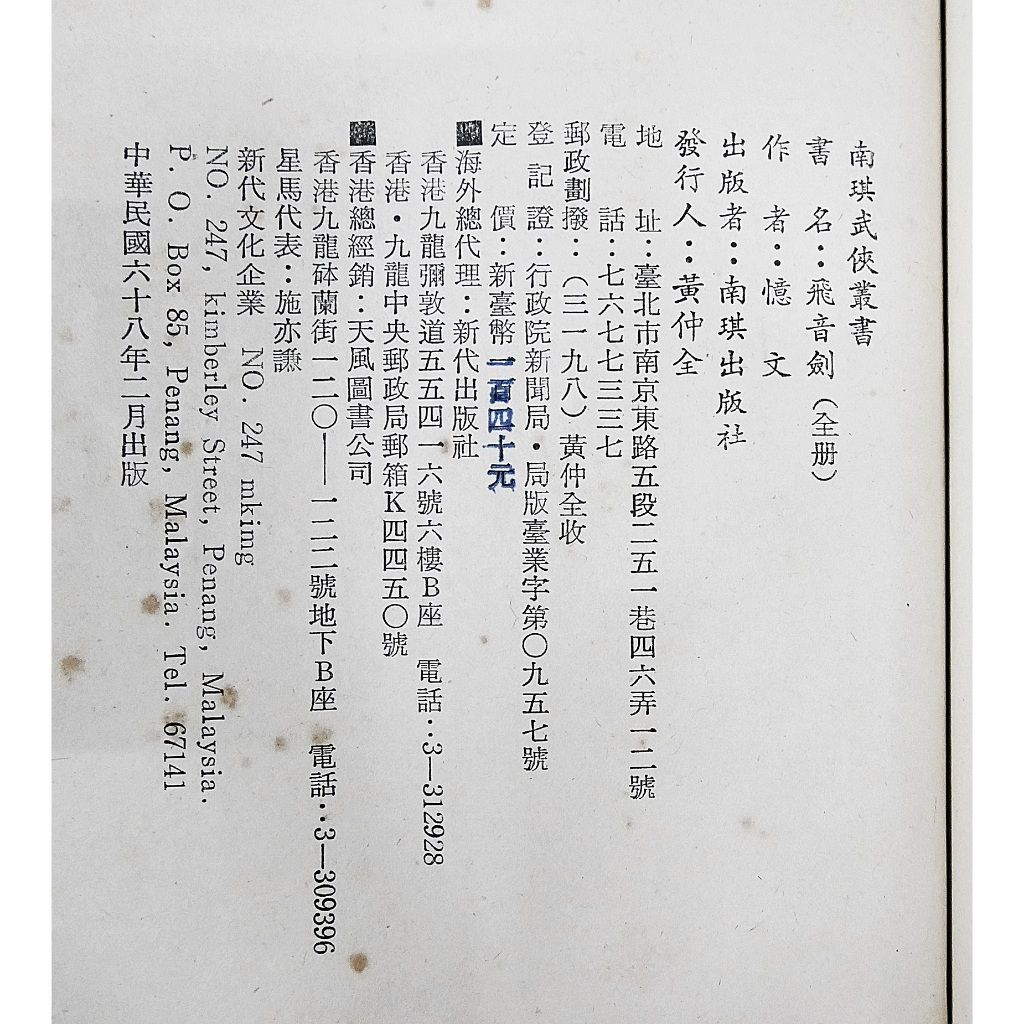 南琪武俠叢書
書名：飛音劍（全册）
作者：憶文
出版者：南琪出版社
發行人：黃仲全
地址：臺北市南京東路五段二五一巷四六弄一二號
電話：七六七七三三七
郵政劃撥：（三一九八）黃仲全收
登記證：行政院新聞局・局版臺業字第〇九五七號
定價：新臺幣一百四十元
海外總代理：新代出版社
香港九龍彌敦道五五四一六號六樓B座　電話：3—312928
香港・九龍中央郵政局郵箱K四四五〇號
香港總經銷：天風圖書公司
香港九龍砵蘭街一二〇——一二二號地下B座　電話：3—309396
星馬代表：施亦謙
新代文化企業　NO. 247 mkimg
NO. 247, kimberley Street, Penang, Malaysia.
P. O. Box 85, Penang, Malaysia. Tel. 67141
中華民國六十八年二月出版